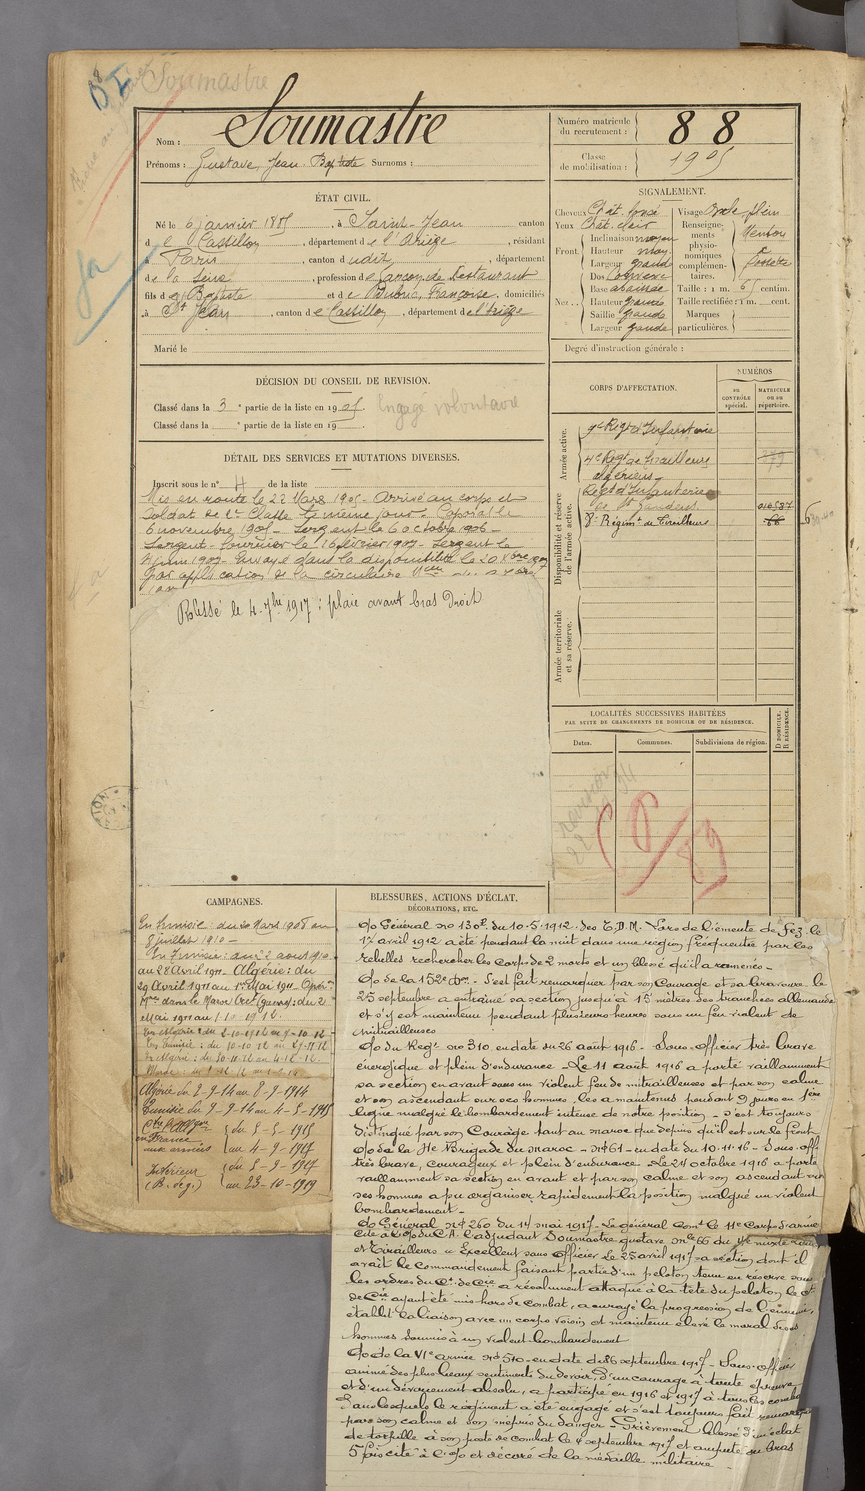 Soumastre
Nom : Soumastre
Prénoms : Gustave, Jean Baptiste Surnoms :
Numéro matricule
du recrutement : 88
Classe
de mobilisation : 1905
ÉTAT CIVIL.
Né le 6 janvier 1885, à Saint-Jean canton
de Castillon, département de l'Ariège, résidant
à Paris, canton dudit, département
de la Seine, profession de garçon de Restaurant
fils de Baptiste et de Dubuc, Françoise, domiciliés
à St Jean, canton de Castillon, département de l'Ariège
Marié le
SIGNALEMENT.
Cheveux Chât. foncé
Yeux Chât. clair
Front Inclinaison moyen
Hauteur moy.
Largeur grand
Nez Dos Convexe
Base abaissée
Hauteur grande
Saillie grande
Largeur grande
Visage Ovale plein
Renseignements physionomiques complémentaires. Menton à fossette
Taille : 1 m. 65 centim.
Taille rectifiée : 1 m. cent.
Marques
particulières.
Degré d'instruction générale :
DÉCISION DU CONSEIL DE REVISION.
Classé dans la 3e partie de la liste en 1905. Engagé volontaire
Classé dans la e partie de la liste en 19
DÉTAIL DES SERVICES ET MUTATIONS DIVERSES.
Inscrit sous le n° de la liste
Mis en route le 22 Mars 1905 - Arrivé au corps et
Soldat de 2e Classe le même jour - Caporal le
6 novembre 1905 - Sergent le 6 octobre 1906 -
Sergent-fourrier le 16 février 1907 - Sergent le
juin 1907 - Envoyé dans la disponibilité le
par application de la circulaire
Blessé le 4-7bre 1917 : plaie avant bras Droit
CORPS D'AFFECTATION.
NUMÉROS
AU CONTRÔLE spécial.
MATRICULE OU AU répertoire.
Armée active.
Regt d'Infanterie
4e Régt de Tirailleurs
algériens
Disponibilité et réserve de l'armée active.
Régt d'Infanterie
de St Gaudens
8e Régimt de Tirailleurs
Armée territoriale et sa réserve.
LOCALITÉS SUCCESSIVES HABITÉES
PAR SUITE DE CHANGEMENTS DE DOMICILE OU DE RÉSIDENCE.
Dates.
Communes.
Subdivisions de région.
D DOMICILE.
R RÉSIDENCE.
CAMPAGNES.
En Tunisie : du 20 Mars 1908 au
8 juillet 1910 -
En Tunisie : du 2 août 1910
au 28 Avril 1911 - Algérie : du
29 Avril 1911 au 1er Mai 1911 -
dans le Maroc Or. (guerre) : du 2
Mai 1911 au 1-10-1912
En Algérie : du 2-10-1912 au 9-10-12
En Tunisie : du 10-10-12 au
En Algérie : du 30-11-12 au 4-12-12.
Algérie du 2-9-14 au 8-9-1914
Tunisie du 9-9-14 au 4-5-1915
en France
aux armées du 5-5-1915
au 4-9-1917
Intérieur du 5-9-1917
au 23-10-1919
BLESSURES, ACTIONS D'ÉCLAT.
DÉCORATIONS, ETC.
O/o Général no 130e du 10.5.1912 des T.D.M. Lors de l'émeute de Fez le
17 avril 1912 a été pendant la nuit dans une région fréquentée par les
rebelles rechercher les corps de 2 morts et un blessé qu'il a ramenés -
O/o de la 152e Don - S'est fait remarquer par son courage et sa bravoure le
25 septembre a entraîné sa section jusqu'à 15 mètres des tranchées allemandes
et s'y est maintenu pendant plusieurs heures sous un feu violent de
mitrailleuses
O/o du Regt no 310 en date du 26 août 1916 - Sous-officier très brave
énergique et plein d'endurance - Le 11 août 1916 a porté vaillamment
sa section en avant sous un violent feu de mitrailleuses et par son calme
et son ascendant sur ses hommes, les a maintenus pendant 9 jours en 1ère
ligne malgré le bombardement intense de notre position - s'est toujours
distingué par son Courage tant au maroc que depuis qu'il est sur le front
O/o de la Brigade du maroc - no 61 - en date du 10.11.16 - Sous-off.
très brave, courageux et plein d'endurance Le 24 octobre 1916 a porté
vaillamment sa section en avant et par son calme et son ascendant sur
ses hommes a pu organiser rapidement la position malgré un violent
bombardement -
O/o Général no 260 du 14 mai 1917 - Le général Comt le 11e Corps d'armée
Cite à l'o/o du C.A. l'adjudant Soumastre gustave mle 66 du mixte Zouaves
et Tirailleurs « Excellent sous officier Le 25 avril 1917 la section dont il
avait le commandement faisant partie d'un peloton tenu en réserve sous
les ordres du Ct. de Cie a résolument attaqué à la tête du peloton le Ct
de Cie ayant été mis hors de combat, a enrayé la progression de l'ennemi,
établit la liaison avec un corps voisin et maintenu élevé le moral de ses
hommes soumis à un violent bombardement
O/o de la VIe armée no 510 - en date du 26 septembre 1917 - Sous-officier
animé des plus beaux sentiments du devoir, d'un courage à toute épreuve
et d'un dévouement absolu, a participé en 1916 et 1917 à tous les combats
dans lesquels le régiment a été engagé et s'est toujours fait remarquer
par son calme et son mépris du danger - Grièvement blessé d'un éclat
de torpille à son poste de combat le 4 septembre 1917 et amputé du bras
5 fois cité à l'o/o et décoré de la médaille militaire